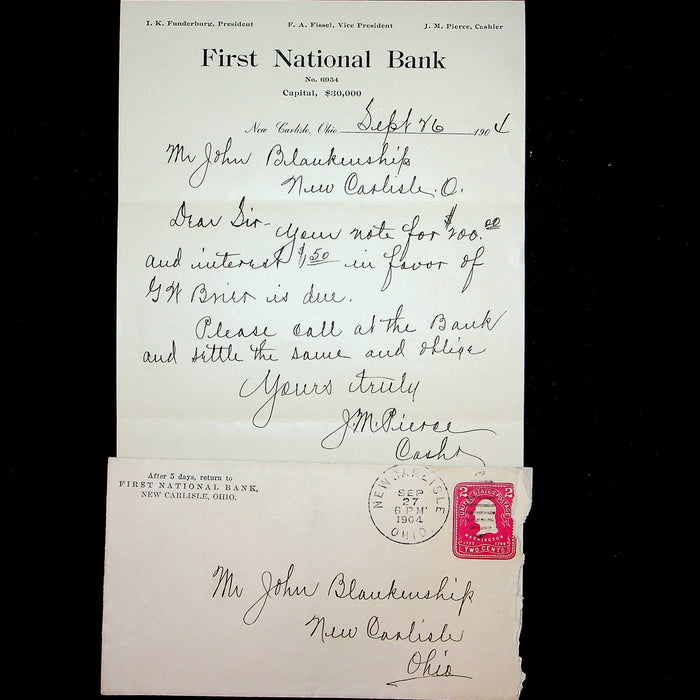 I. K. Funderburg, President F. A. Fissel, Vice President J. M. Pierce, Cashier
First National Bank
No. 6954
Capital, $30,000
New Carlisle, Ohio Sept 26 1904
Mr John Blankenship
New Carlisle. O.
Dear Sir- Your note for $200.00
and interest $1.50 in favor of
G W Brier is due.
Please call at the Bank
and settle the same and oblige
Yours truly
J.M. Pierce
Cashr
After 5 days, return to
FIRST NATIONAL BANK,
NEW CARLISLE, OHIO.
NEW CARLISLE
SEP
27
6 PM
1904
OHIO.
2 2
UNITED STATES POSTAGE
WASHINGTON
1732 1799
TWO CENTS
Mr John Blankenship
New Carlisle
Ohio